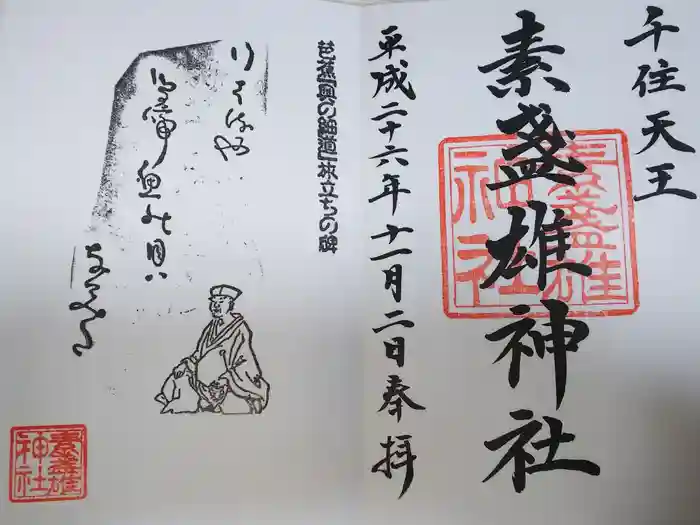 千住天王
素盞雄神社
素盞雄
神社
平成二十六年十一月二日奉拝
芭蕉「奥の細道」旅立ちの碑
行く春や
鳥啼魚の目は
なみだ
素盞雄
神社